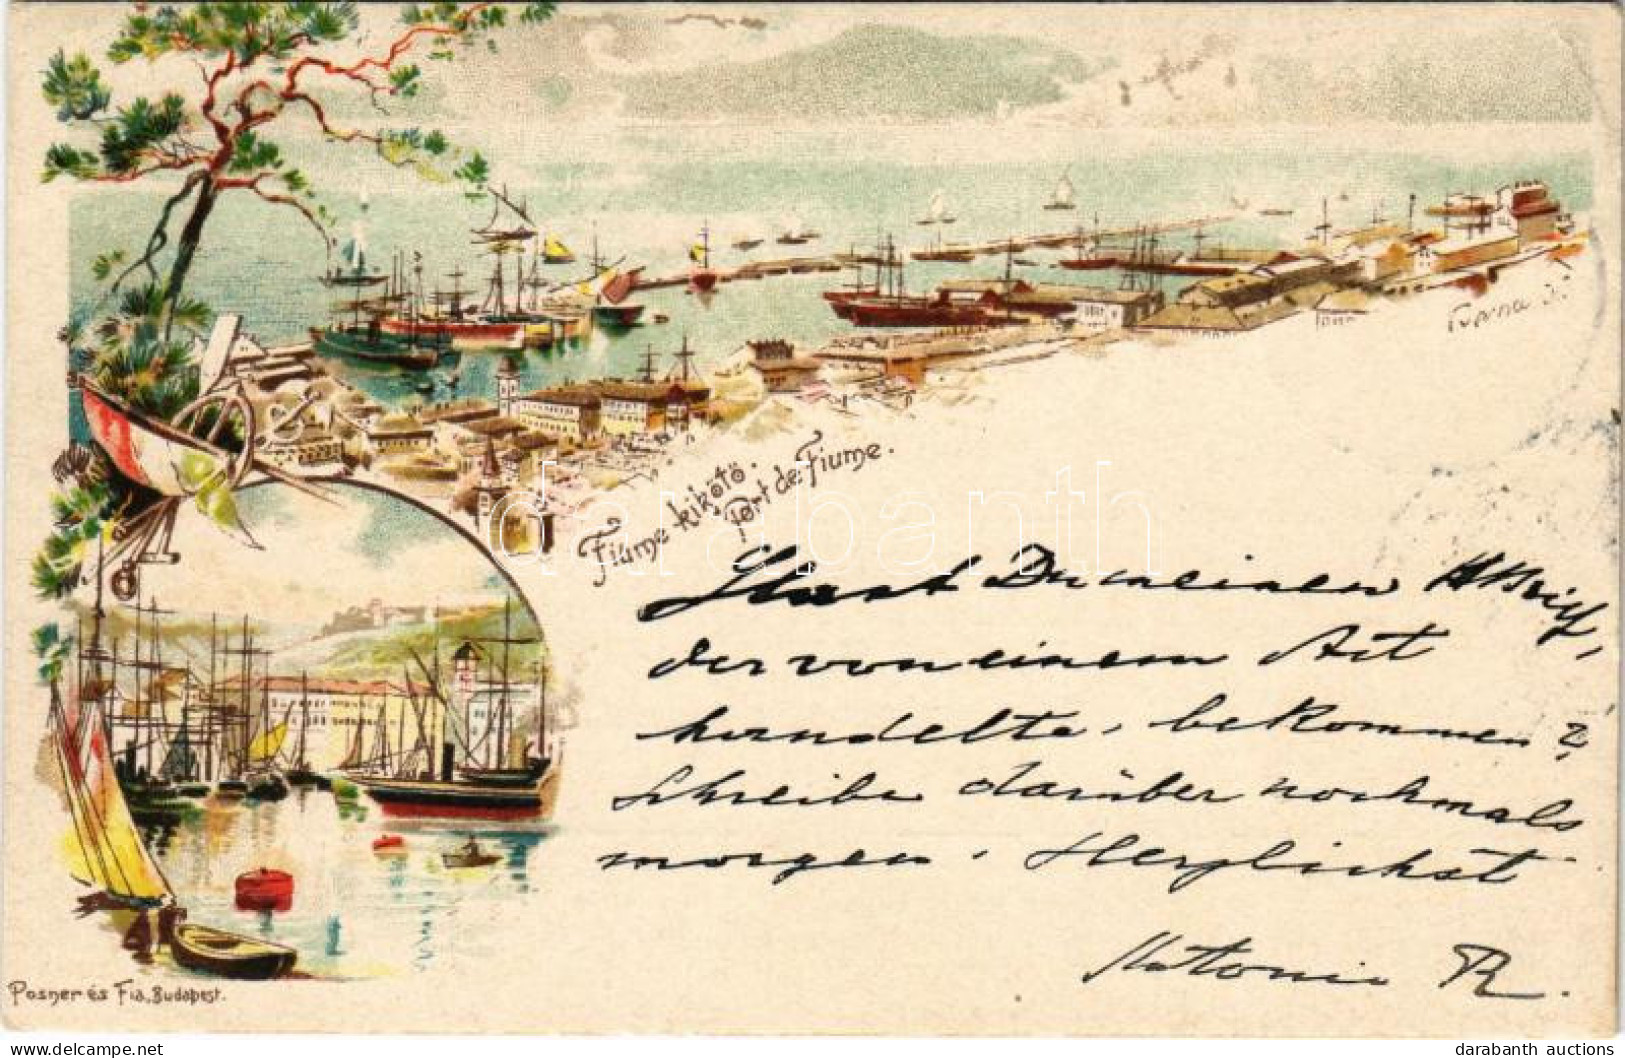 Fiume kikötő.
Port de Fiume.
Hast Du meinen Brief,
der von einem Art
handelte, bekommen?
Schreibe darüber nochmals
morgen. Herzlichst
R.
Posner és Fia, Budapest.
darabanth
darabanth auctions